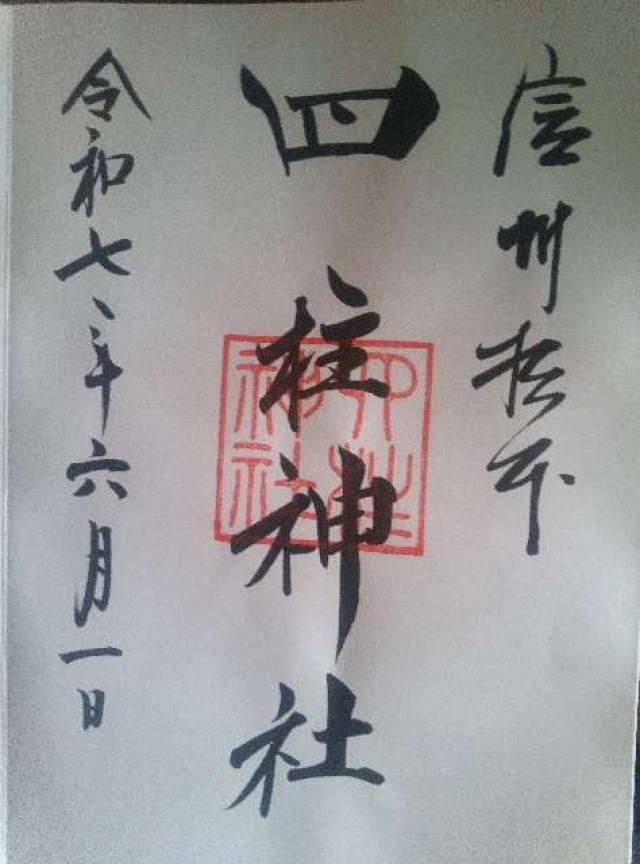 信州松本
四柱神社
四柱神社
令和七年六月一日